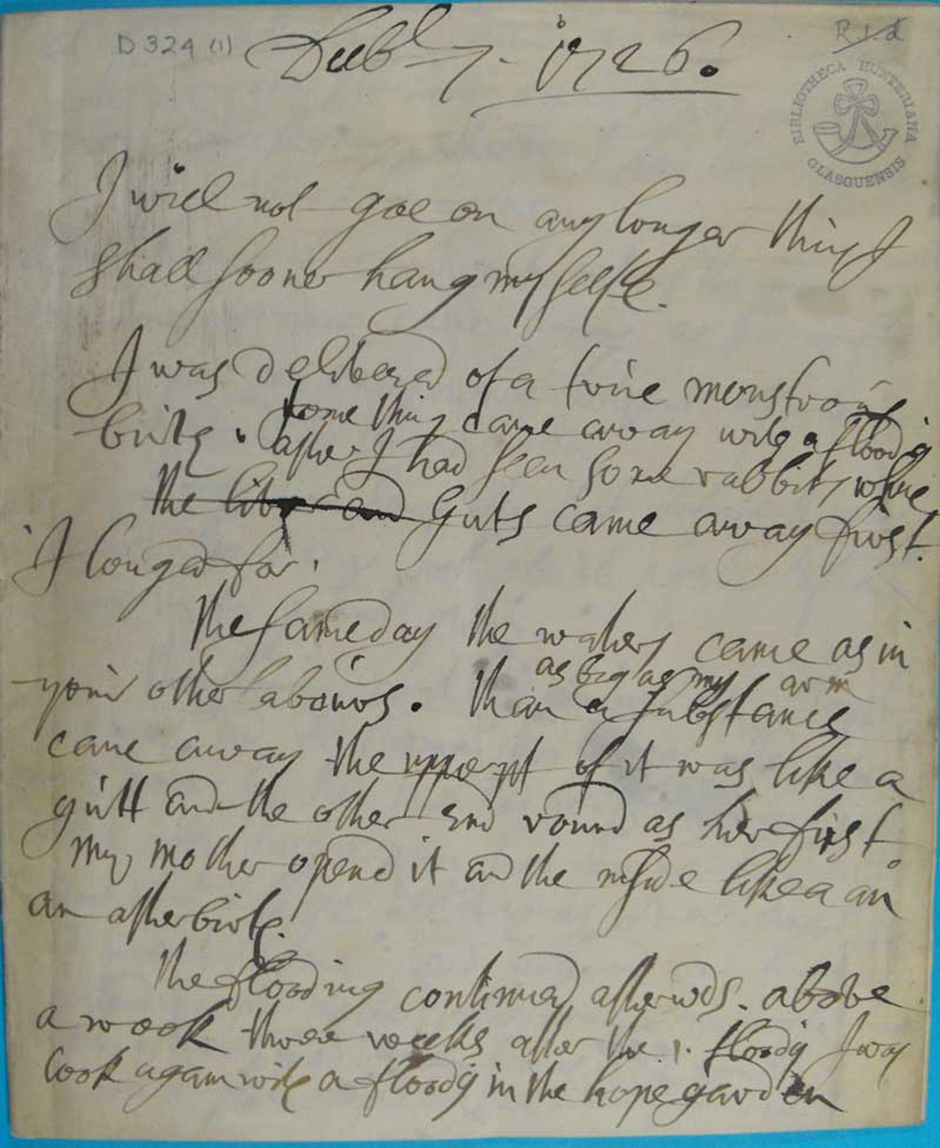 D 324 (1)
Decbr 7. 1726.
BIBLIOTHECA HUNTERIANA
GLASGUENSIS
I will not goe on any longer thus I
shall sooner hang myselfe.
I was delivered of a true monstrous
birth. something came away with a flooding
after I had seen some rabbits whic
the liver and Guts came away first.
I longed for.
The same day the waters came as in
your other labours. than a substance
as big as my arm
came away the uppe pt of it was like a
gutt and the other End round as her fist
my mother opend it and the inside like a an
an afterbirth.
The flooding continued afterwds. above
a week three weeks after the 1. floodg I was
took again with a floodg in the hope garden